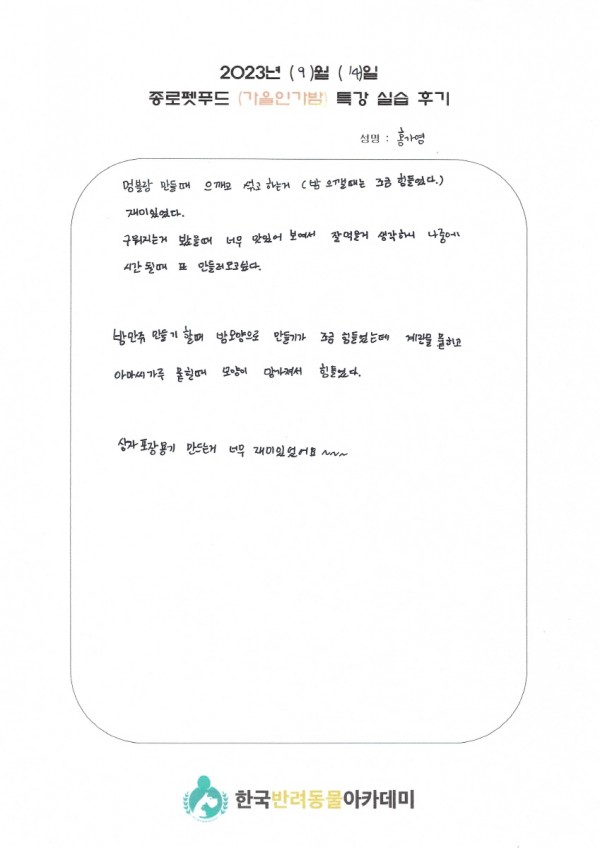 2023년 (9)월 (14)일
종로펫푸드 (가을인가밤) 특강 실습 후기
성명 : 홍가영
멍블랑 만들때 으깨고 섞고 하는거 (밤 으깰때는 조금 힘들었다.)
재미있었다.
구워지는거 봤을때 너무 맛있어 보여서 잘먹을거 생각하니 나중에
시간 될때 또 만들러오고싶다.
밤만쥬 만들기 할때 밤모양으로 만들기가 조금 힘들었는데 계란물 묻히고
아마씨가루 묻힐때 모양이 망가져서 힘들었다.
상자포장용기 만드는거 너무 재미있었어요~~~
한국반려동물아카데미